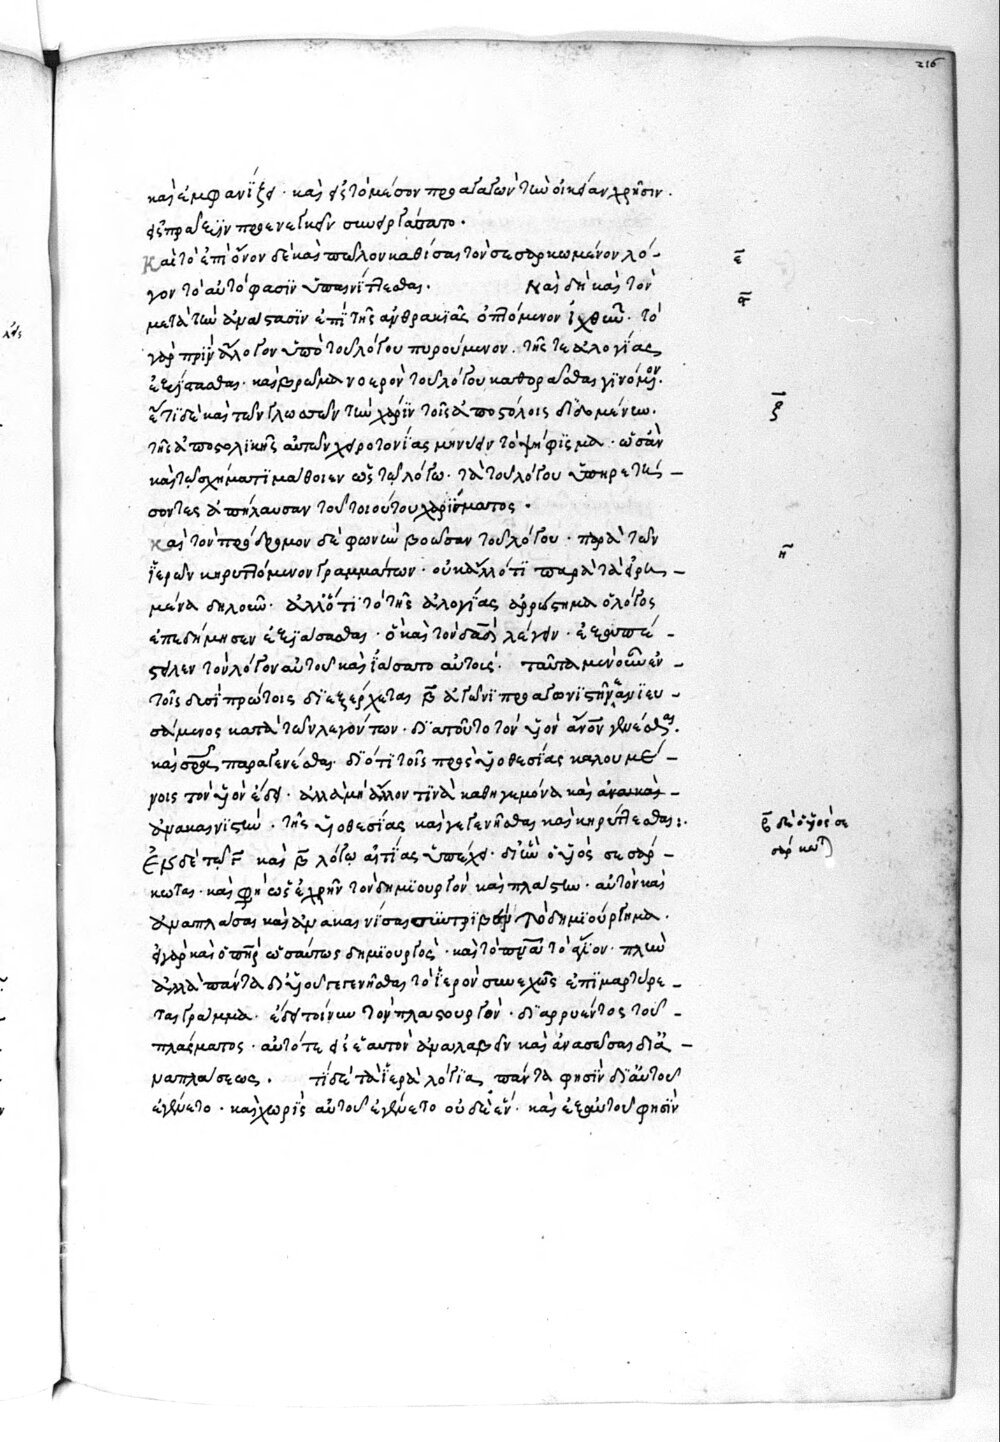 216
καὶ ἐμφανίζει · καὶ εἰς τὸ μέσον προαγαγὼν τὴν οἰκείαν χρῆσιν ·
εἰς προὖχον προενεγκεῖν
καὶ τὸ ἐπὶ ὄνον δὲ καὶ πῶλον καθίσαι τὸν σεσαρκωμένον λό-
γον τὸ αὐτὸ φασὶν ὑπαινίττεσθαι · καὶ δὴ καὶ τὸν
μετὰ τὴν ἀνάστασιν ἐπὶ τῆς ἀνθρακιᾶς ὀπτόμενον ἰχθὺν · τὸ
γὰρ πρὶν ἄλογον ὑπὸ τοῦ λόγου πυρούμενον · τῆς τε ἀλογίας
ἐξίστασθαι · καὶ βρῶμα νοερὸν τοῦ λόγου καθορᾶσθαι γινόμενον ·
ἔτι δὲ καὶ τῶν γλωσσῶν τὴν χάριν τοῖς ἀποστόλοις διδομένων ·
τῆς ἀποστολικῆς αὐτῶν χειροτονίας μηνύειν τὸ ψήφισμα · ὡς ἂν
καὶ τῷ σχήματι μάθοιεν ὡς τῷ λόγῳ · τὰ τοῦ λόγου ὑπηρετή-
σοντες ἀπήλαυσαν τοῦ τοιούτου χαρίσματος ·
καὶ τὸν πρόδρομον δὲ φωνὴν βοῶσαν τοῦ λόγου · παρὰ τῶν
ἱερῶν κηρυττόμενον γραμμάτων · οὐκ ἄλλό τι παρὰ τὰ εἰρη-
μένα δηλοῦν · ἀλλ' ὅτι τὸ τῆς ἀλογίας ἀρρώστημα ὁ λόγος
ἐπεδήμησεν ἐξιάσασθαι · ὃ καὶ τὸν δαδ λέγειν · ἐξαπέ-
στειλεν τὸν λόγον αὐτοῦ καὶ ἰάσατο αὐτούς · ταῦτα μὲν οὖν ἐν
τοῖς δυσὶ πρώτοις διεξέρχεται β ἀγῶνι προαγωνιστὴν ἀνιεύ-
σάμενος κατὰ τῶν λεγόντων · διὰ τοῦτο τὸν υἱὸν ἄνον γενέσθαι ·
καὶ παραγενέσθαι διότι τοῖς πρὸς υἱοθεσίας καλουμέ-
νοις τὸν υἱὸν ἔδει · ἀλλὰ μὴ ἄλλον τινὰ καθηγεμόνα καὶ
ἀνακαινιστὴν · τῆς υἱοθεσίας καὶ γεγενῆσθαι καὶ κηρύττεσθαι :
Ἐν δὲ τῷ γ καὶ β λόγῳ αἰτίας ὑπέχει · δι' ἣν ὁ υἱὸς σεσάρ-
κωται · καὶ φη ὡς ἐχρῆν τὸν δημιουργὸν καὶ πλάστην · αὐτὸν καὶ
ἀναπλάσαι καὶ ἀνακαινίσαι συντριβὲν τὸ δημιούργημα ·
εἰ γὰρ καὶ ὁ πηρ ὡσαύτως δημιουργὸς · καὶ τὸ πνα τὸ ἅγιον · πλὴν
ἀλλὰ πάντα δι' υἱοῦ γεγενῆσθαι τὸ ἱερὸν συνεχῶς ἐπιμαρτύρε-
ται γράμμα · ἔδει τοίνυν τὸν πλαστουργὸν · διαρρυέντος τοῦ
πλάσματος · αὐτό τε εἰς ἑαυτὸν ἀναλαβεῖν καὶ ἀνασῶσαι δι' ἀ-
ναπλάσεως · τί δὲ τὰ ἱερὰ λόγια πάντα φησὶν δι' αὐτοῦ
ἐγένετο · καὶ χωρὶς αὐτοῦ ἐγένετο οὐδὲ ἕν · καὶ ἐξ αὐτοῦ φησὶν
ε
ϛ
ζ
η
δὲ ὁ υἱὸς σε
σάρκωτ